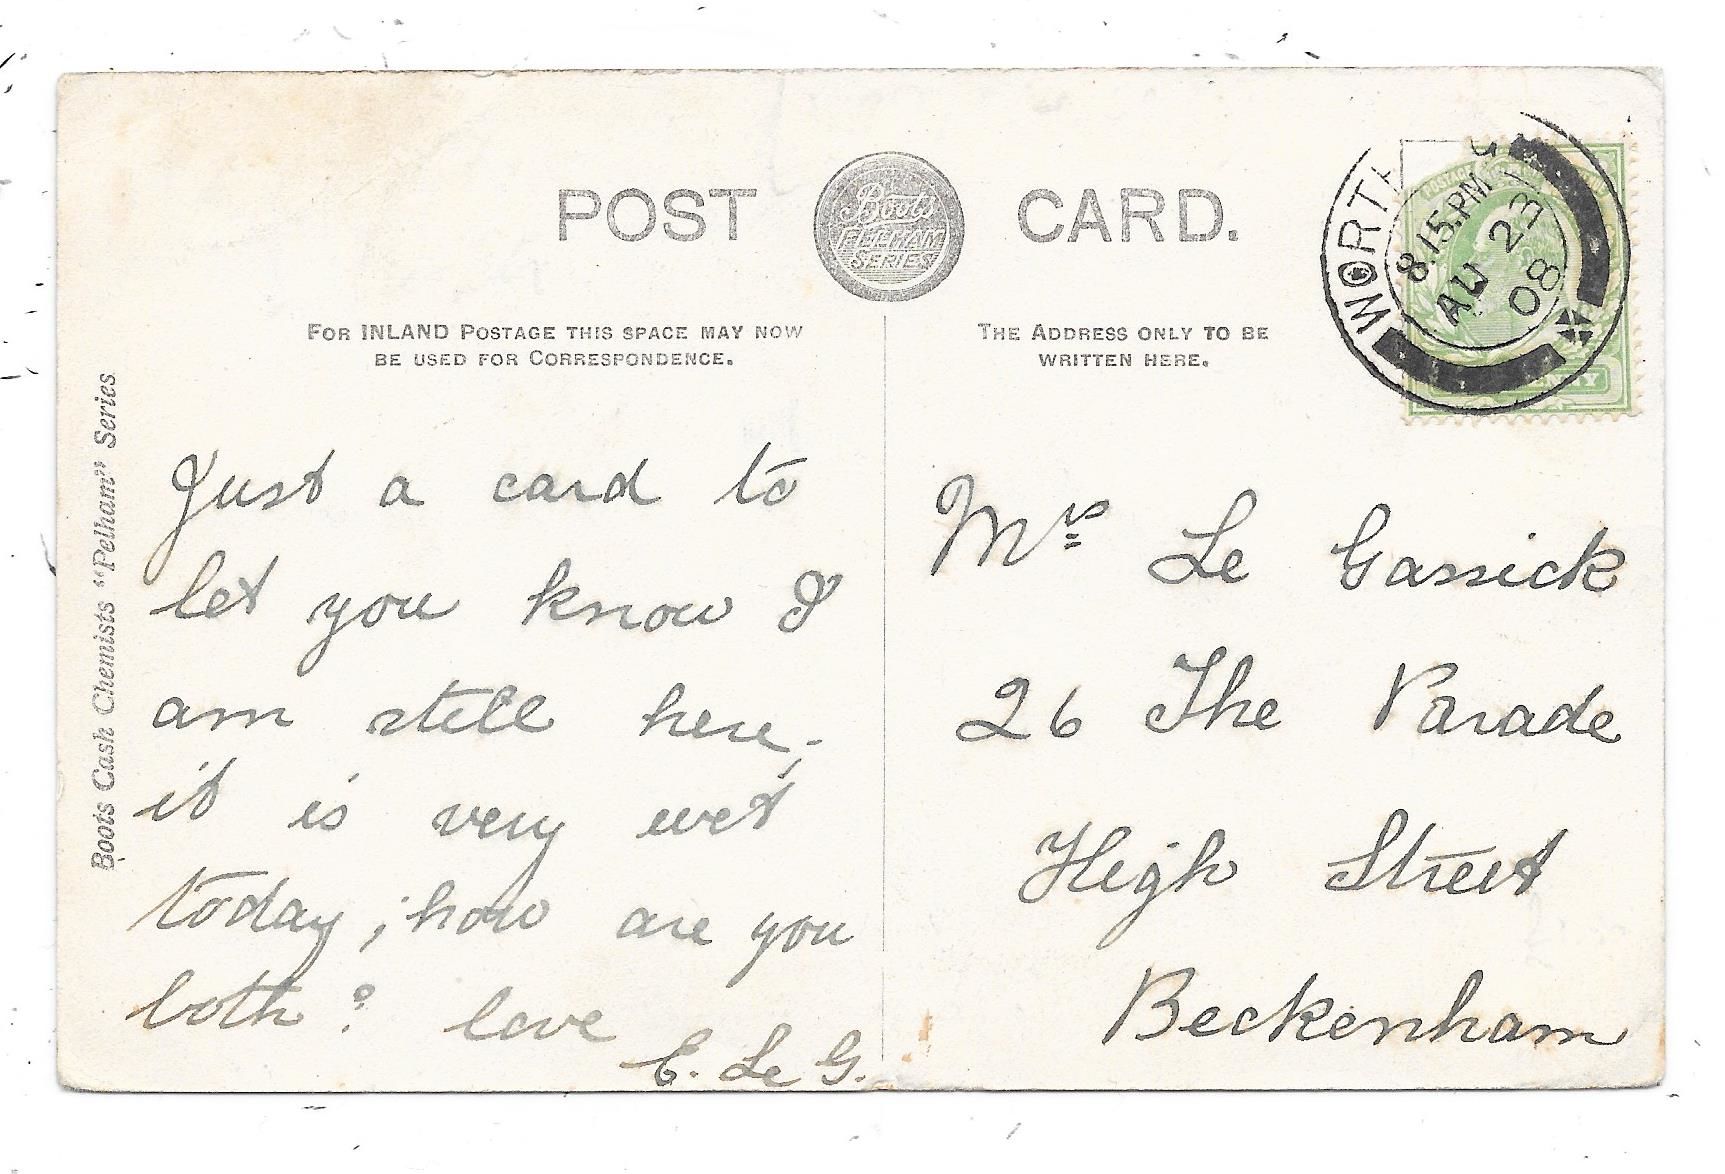 POST CARD.
Boots
PELHAM
SERIES
FOR INLAND POSTAGE THIS SPACE MAY NOW
BE USED FOR CORRESPONDENCE.
THE ADDRESS ONLY TO BE
WRITTEN HERE.
Boots Cash Chemists "Pelham" Series
8.15.PM
AU 23
08
Just a card to
let you know I
am still here,
it is very wet
today; how are you
both? love
E. Le G.
Mrs Le Gassick
26 The Parade
High Street
Beckenham